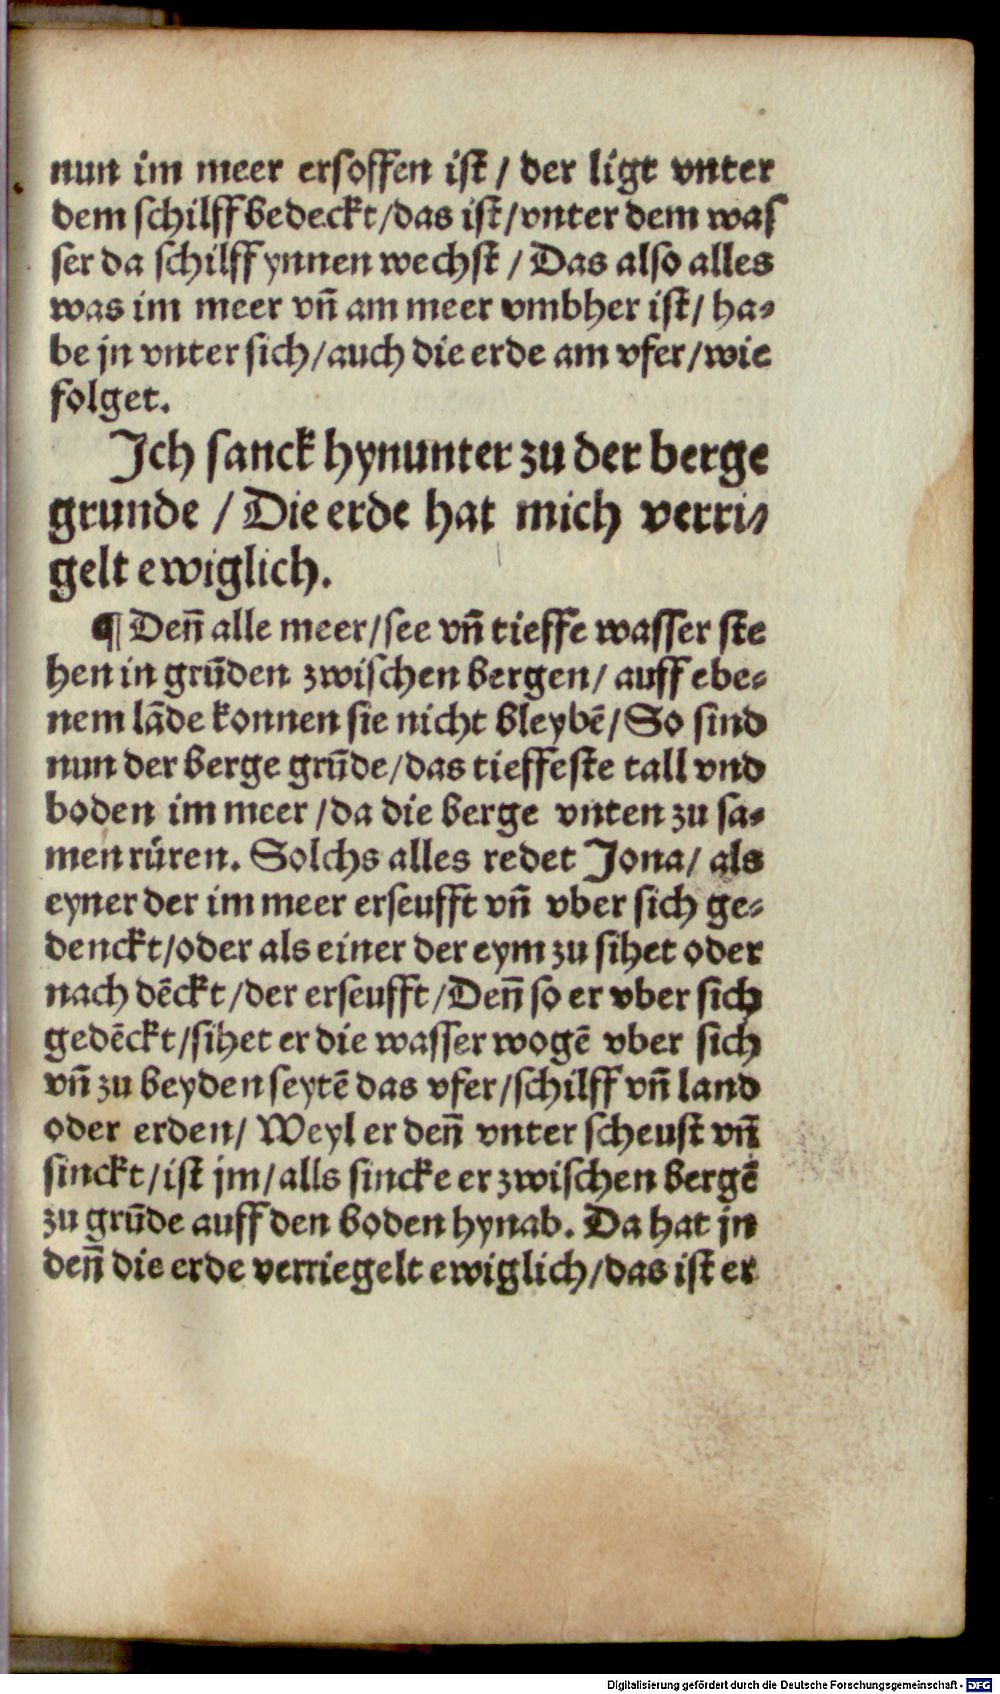 nun im meer ersoffen ist / der ligt vnter
dem schilff bedeckt/das ist/vnter dem was
ser da schilff ynnen wechst / Das also alles
was im meer vn̄ am meer vmbher ist/ ha-
be jn vnter sich/auch die erde am vfer/wie
folget.
Jch sanck hynunter zu der berge
grunde / Die erde hat mich verri-
gelt ewiglich.
¶ Den̄ alle meer/see vn̄ tieffe wasser ste
hen in grūden zwischen bergen/ auff ebe-
nem lāde konnen sie nicht bleybē/So sind
nun der berge grūde/das tieffeste tall vnd
boden im meer/da die berge vnten zu sa-
men rüren. Solchs alles redet Jona/ als
eyner der im meer erseufft vn̄ vber sich ge-
denckt/oder als einer der eym zu sihet oder
nach dēckt/der erseufft/Den̄ so er vber sich
gedēckt/sihet er die wasser wogē vber sich
vn̄ zu beyden seytē das vfer/schilff vn̄ land
oder erden/ Weyl er den̄ vnter scheust vn̄
sinckt/ist jm/alls sincke er zwischen bergē
zu grūde auff den boden hynab. Da hat jn
den̄ die erde verriegelt ewiglich/das ist er
Digitalisierung gefördert durch die Deutsche Forschungsgemeinschaft - DFG